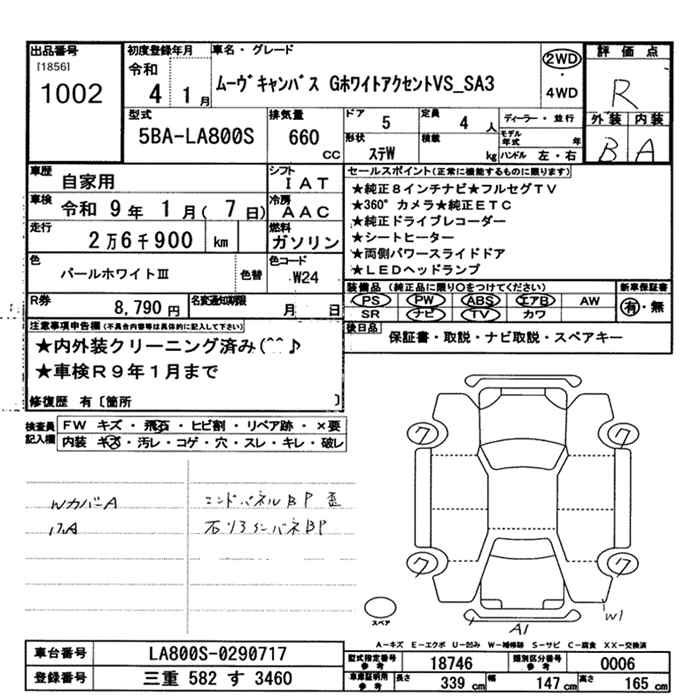 出品番号
[1856]
1002
初度登録年月
令和
4 1月
車名・グレード
ムーヴキャンバス GホワイトアクセントVS_SA3
2WD
・
4WD
評価点
R
外装 内装
B A
型式
5BA-LA800S
排気量
660
cc
ドア 5
定員 4 人
形状 ステW
積載 kg
ディーラー・並行
モデル年式 年
ハンドル 左・右
車歴 自家用
シフト IAT
車検 令和 9年 1月( 7日)
冷房 AAC
走行 2万6千900 km
燃料 ガソリン
色 パールホワイトⅢ 色替
色コード W24
R券 8,790円
名変通知期限 月 日
セールスポイント(正常に機能するものに限ります)
★純正8インチナビ★フルセグTV
★360°カメラ★純正ETC
★純正ドライブレコーダー
★シートヒーター
★両側パワースライドドア
★LEDヘッドランプ
装備品 (純正品に限り○をつけてください)
PS PW ABS エアB AW
SR ナビ TV カワ
新車保証書
有・無
後日品 保証書・取説・ナビ取説・スペアキー
注意事項申告欄(不具合内容等は具体的に記入して下さい)
★内外装クリーニング済み(^^♪
★車検R9年1月まで
修復歴 有〔箇所 〕
検査員記入欄
FW キズ・飛石・ヒビ割・リペア跡・×要
内装 キズ・汚レ・コゲ・穴・スレ・キレ・破レ
WカバーA
エンドパネルBP
ワ ワ
ワ ワ
スペア
A1
W1
A-キズ E-エクボ U-凹み W-補修跡 S-サビ C-腐食 XX-交換済
車台番号 LA800S-0290717
登録番号 三重 582 す 3460
型式指定番号 参考 18746
類別区分番号 参考 0006
車庫証明用 参考 長さ 339cm 幅 147cm 高さ 165cm